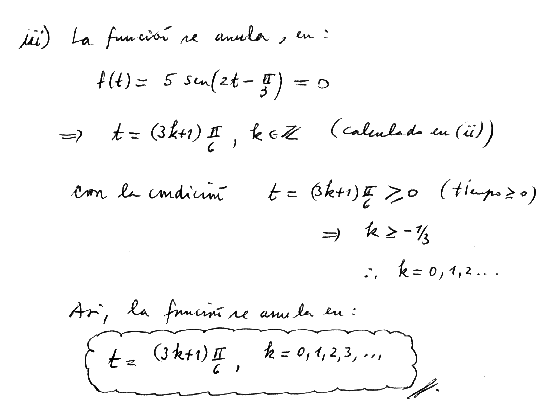 iii) La función se anula, en:
f(t) = 5 sen(2t - π/3) = 0
⇒ t = (3k+1) π/6, k ∈ ℤ (calculado en (ii))
con la condición t = (3k+1) π/6 ≥ 0 (tiempo ≥ 0)
⇒ k ≥ -1/3
∴ k = 0, 1, 2 ...
Así, la función se anula en:
t = (3k+1) π/6, k = 0, 1, 2, 3, ...